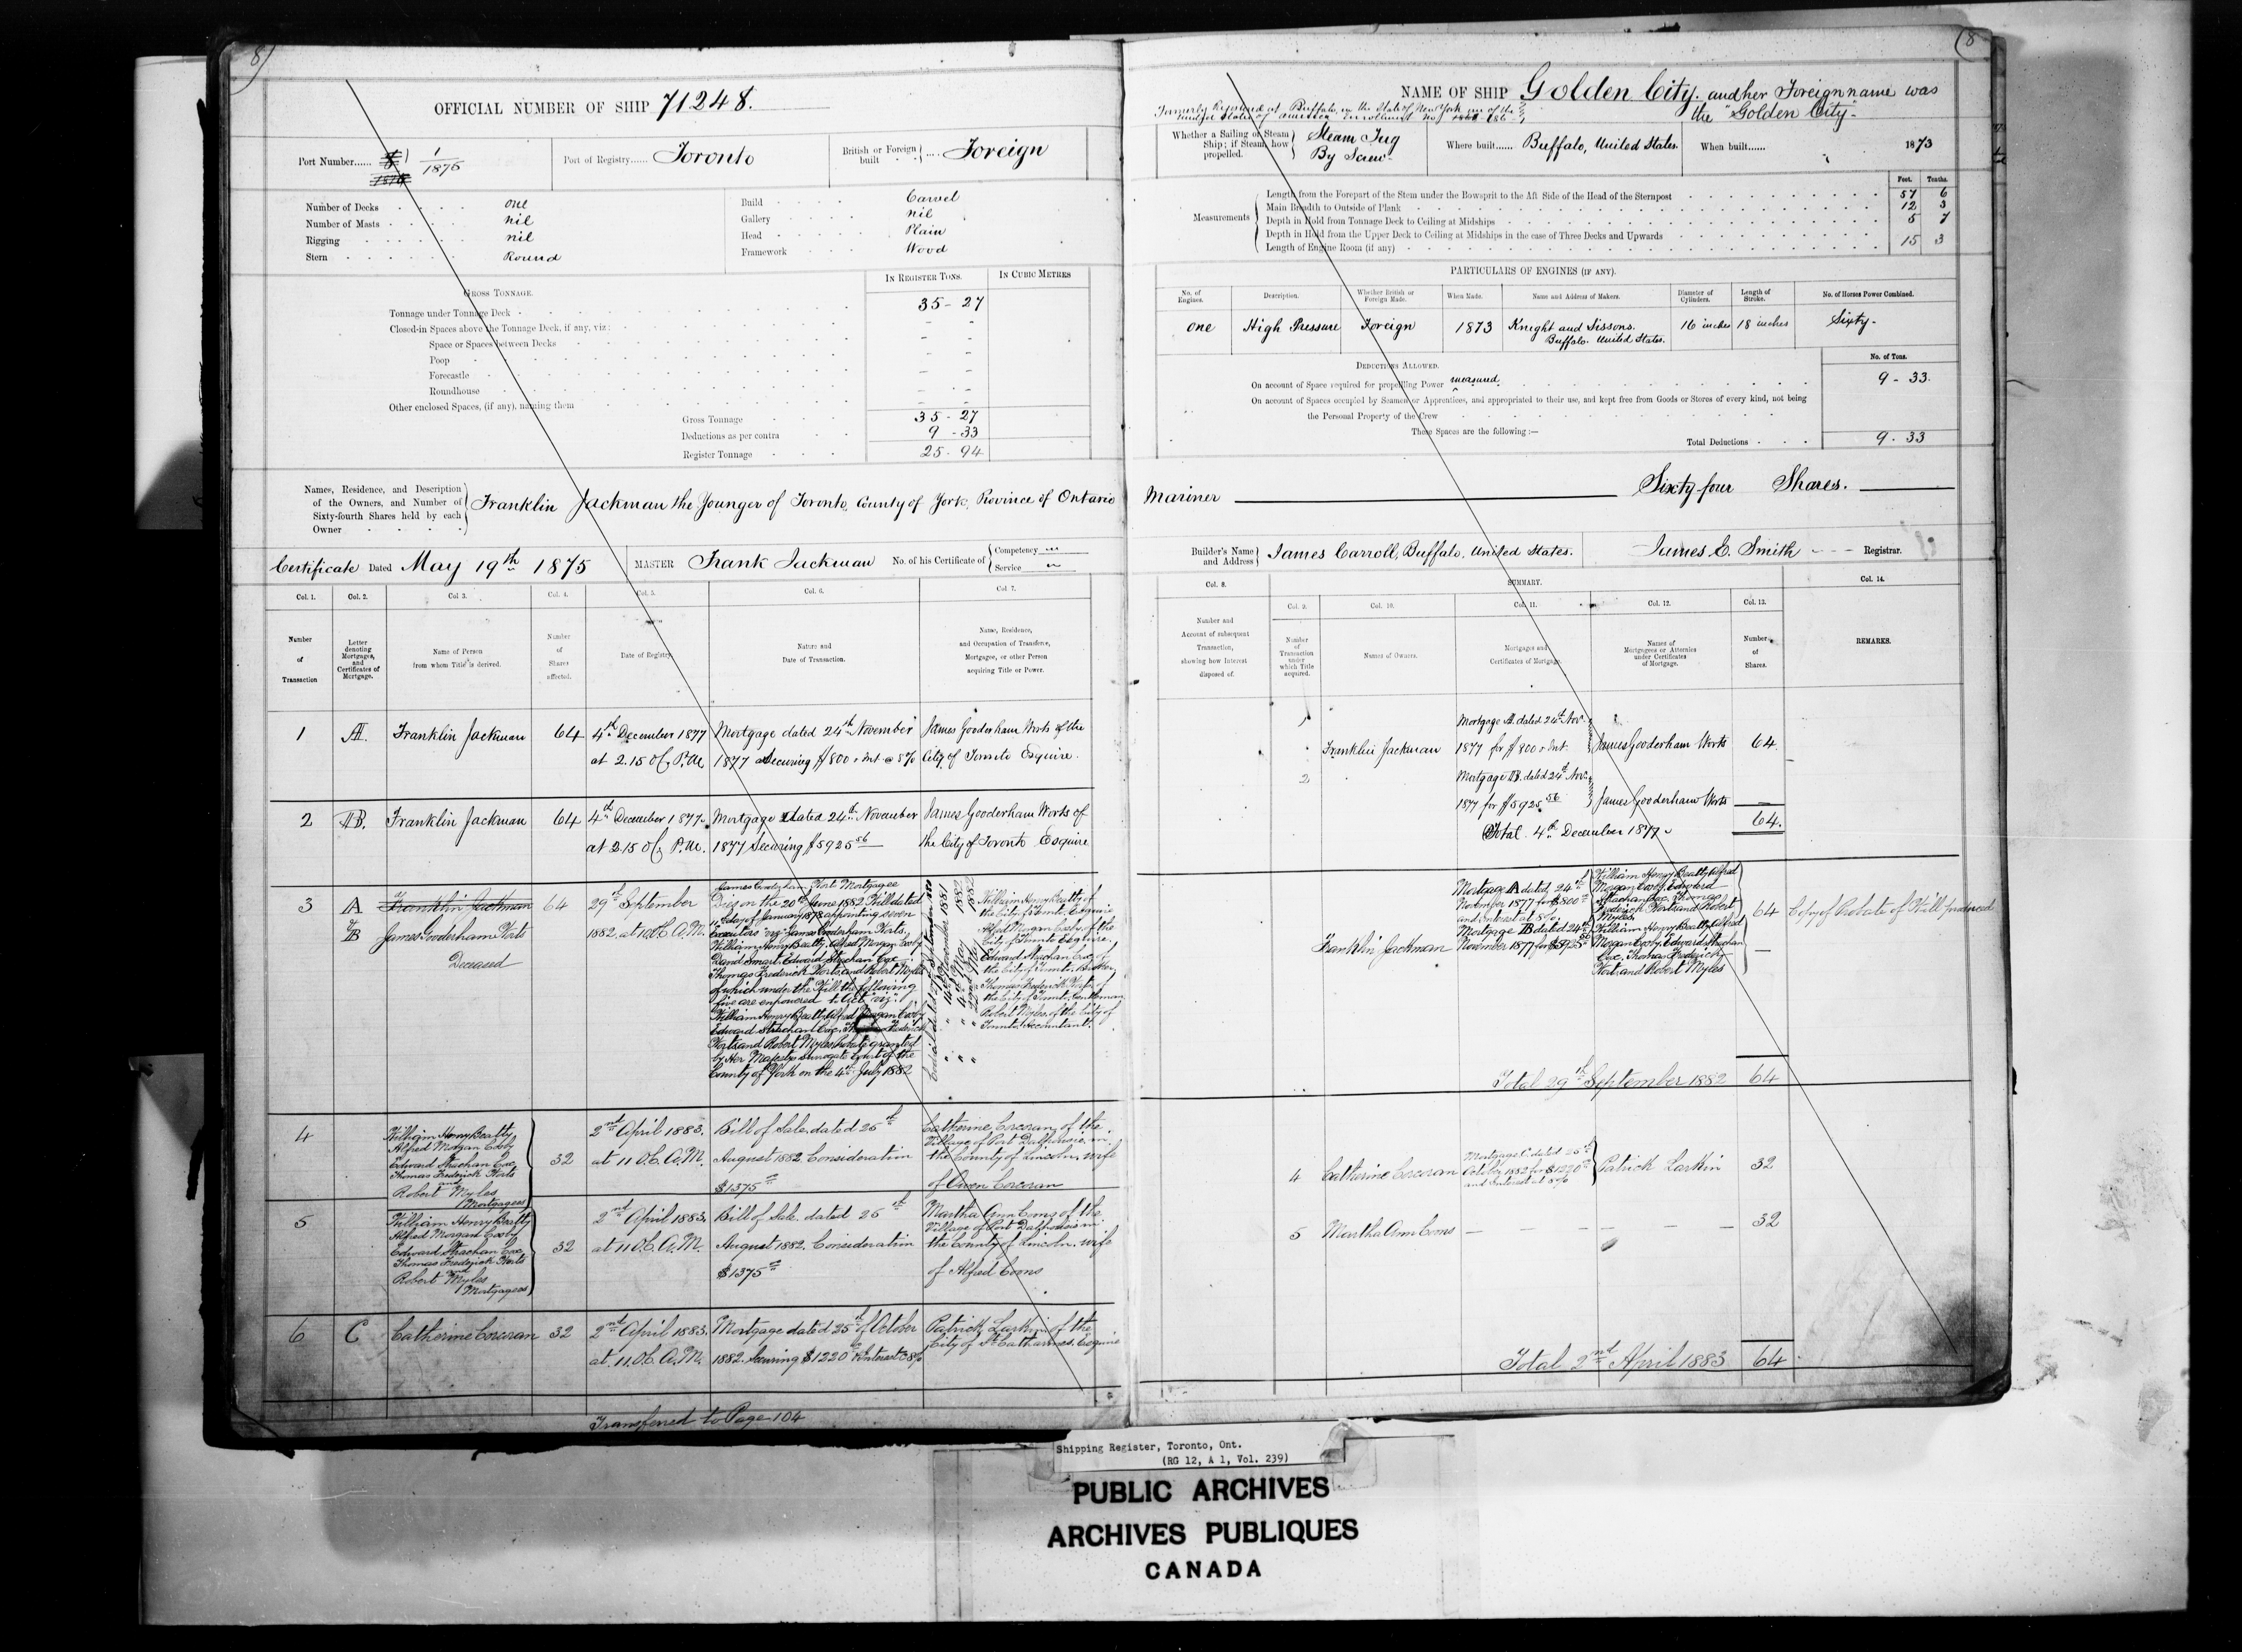 8)
(8
OFFICIAL NUMBER OF SHIP 71248.
Port Number...... 1/1875
Port of Registry...... Toronto
British or Foreign built .... Foreign
Number of Decks one
Number of Masts nil
Rigging nil
Stern Round
Build Carvel
Gallery nil
Head Plain
Framework Wood
GROSS TONNAGE.
IN REGISTER TONS. IN CUBIC METRES
Tonnage under Tonnage Deck 35-27
Closed-in Spaces above the Tonnage Deck, if any, viz:
Space or Spaces between Decks
Poop
Forecastle
Roundhouse
Other enclosed Spaces, (if any), naming them
Gross Tonnage 35-27
Deductions as per contra 9-33
Register Tonnage 25-94
NAME OF SHIP Golden City. and her Foreign name was
the "Golden City"
Formerly Registered at Buffalo in the State of New York one of the
United States of America Enrollment No.
Whether a Sailing or Steam Ship; if Steam, how propelled. Steam Tug
By Screw
Where built...... Buffalo, United States.
When built...... 1873
Feet. Tenths.
Measurements
Length from the Forepart of the Stem under the Bowsprit to the Aft Side of the Head of the Sternpost 57 6
Main Breadth to Outside of Plank 12 3
Depth in Hold from Tonnage Deck to Ceiling at Midships 5 7
Depth in Hold from the Upper Deck to Ceiling at Midships in the case of Three Decks and Upwards
Length of Engine Room (if any) 15 3
PARTICULARS OF ENGINES (IF ANY).
No. of Engines. Description. Whether British or Foreign Made. When Made. Name and Address of Makers. Diameter of Cylinders. Length of Stroke. No. of Horses Power Combined.
One High Pressure Foreign 1873 Knight and Sissons. 16 inches 18 inches Sixty-
Buffalo. United States.
DEDUCTIONS ALLOWED.
No. of Tons.
On account of Space required for propelling Power measured 9-33.
On account of Spaces occupied by Seamen or Apprentices, and appropriated to their use, and kept free from Goods or Stores of every kind, not being
the Personal Property of the Crew
These Spaces are the following:—
Total Deductions 9.33
Names, Residence, and Description of the Owners, and Number of Sixty-fourth Shares held by each Owner
Franklin Jackman the Younger of Toronto, County of York, Province of Ontario Mariner Sixty four Shares.
Certificate Dated May 19th 1875
MASTER Frank Jackman No. of his Certificate of Competency
Service
Builder's Name and Address James Carroll, Buffalo, United States.
James E. Smith Registrar.
Col. 1. Col. 2. Col 3. Col. 4. Col. 5. Col. 6. Col 7.
Number of Transaction
Letter denoting Mortgages, and Certificates of Mortgage.
Name of Person from whom Title is derived.
Number of Shares affected.
Date of Registry.
Nature and Date of Transaction.
Name, Residence, and Occupation of Transferee, Mortgagee, or other Person acquiring Title or Power.
Col. 8. SUMMARY. Col. 14.
Col. 9. Col. 10. Col. 11. Col. 12. Col. 13.
Number and Account of subsequent Transaction, showing how Interest disposed of.
Number of Transaction under which Title acquired.
Names of Owners.
Mortgages and Certificates of Mortgage.
Names of Mortgagees or Attornies under Certificates of Mortgage.
Number of Shares.
REMARKS.
1 A. Franklin Jackman 64 4th December 1877 Mortgage dated 24th November James Gooderham Worts of the
at 2.15 O/C P.M. 1877 Securing $800 & Int @ 8% City of Toronto Esquire.
2 B. Franklin Jackman 64 4th December 1877. Mortgage dated 24th November James Gooderham Worts of
at 2.15 O/C P.M. 1877 Securing $5925 56 the City of Toronto Esquire
1 Franklin Jackman Mortgage A. dated 24th Nov. 1877 for $800 & Int. James Gooderham Worts 64
2 Mortgage B. dated 24th Nov. 1877 for $5925 56 James Gooderham Worts
Total 4th December 1877 64.
3 A & B Franklin Jackman 64 29th September
James Gooderham Worts 1882. at 10 O.C. A.M.
Deceased
James Gooderham Worts Mortgagee
Dies on the 20th June 1882 Will dated
11 day of January 1878 appointing seven
Executors viz James Gooderham Worts,
William Henry Beatty, Alfred Morgan Cosby
David Smart, Edward Strachan Cox
Thomas Frederick Worts, and Robert Myles
of which under the Will the following
five are empowered to Act viz:
William Henry Beatty, Alfred Morgan Cosby
Edward Strachan Cox, Thomas Frederick
Worts and Robert Myles Probate granted
by Her Majestys Surrogate Court of the
County of York on the 4th July 1882
14th November 1881
4th May 1882
22nd May 1882
William Henry Beatty of
the City of Toronto, Esquire
Alfred Morgan Cosby of the
City of Toronto Esquire.
Edward Strachan Cox of
the City of Toronto, Broker
Thomas Frederick Worts of
the City of Toronto, Gentleman
Robert Myles, of the City of
Toronto, Accountant.
Franklin Jackman
Mortgage A dated 24th
November 1877 for $800
and interest at 8%
Mortgage B dated 24th
November 1877 for $5925 56
William Henry Beatty, Alfred
Morgan Cosby, Edward
Strachan Cox, Thomas
Frederick Worts and Robert
Myles 64
William Henry Beatty, Alfred
Morgan Cosby, Edward Strachan
Cox, Thomas Frederick
Worts and Robert Myles
Copy of Probate of Will produced
Total 29th September 1882 64
4 William Henry Beatty
Alfred Morgan Cosby
Edward Strachan Cox
Thomas Frederick Worts
and
Robert Myles
Mortgagees
32 2nd April 1883. at 11 O.C. A.M.
Bill of Sale dated 25th
August 1882. Consideration
$1375
Catherine Corcoran of the
Village of Port Dalhousie in
the County of Lincoln, wife
of Owen Corcoran
4 Catherine Corcoran Mortgage C dated 25th
October 1882 for $1220
and Interest at 8% Patrick Larkin 32
5 William Henry Beatty
Alfred Morgan Cosby
Edward Strachan Cox
Thomas Frederick Worts
and
Robert Myles
Mortgagees
32 2nd April 1883. at 11 O.C. A.M.
Bill of Sale dated 25th
August 1882. Consideration
$1375
Martha Ann Coons of the
Village of Port Dalhousie in
the County of Lincoln, wife
of Alfred Coons
5 Martha Ann Coons 32
6 C Catherine Corcoran 32 2nd April 1883. Mortgage dated 25th of October Patrick Larkin of the
at 11. O.C. A.M. 1882. Securing $1220 & Interest @ 8% City of St Catharines. Esquire
Total 2nd April 1883 64
Transferred to Page 104
Shipping Register, Toronto, Ont.
(RG 12, A 1, Vol. 239)
PUBLIC ARCHIVES
ARCHIVES PUBLIQUES
CANADA